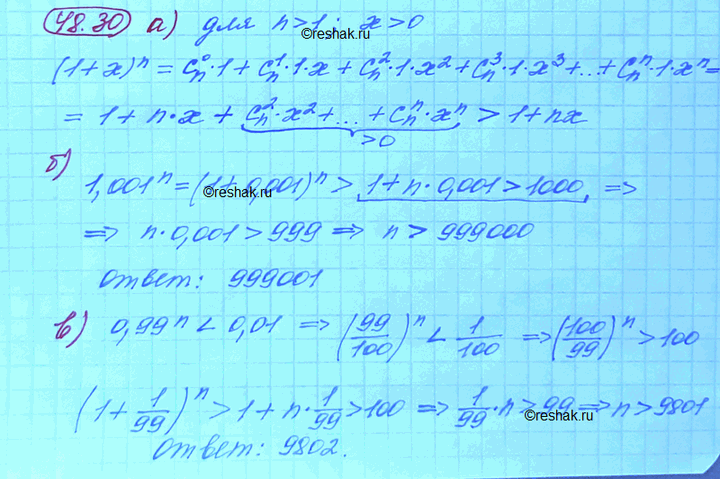 48.30 а) для n>1; x>0
©reshak.ru
(1+x)ⁿ = Cₙ⁰·1 + Cₙ¹·1·x + Cₙ²·1·x² + Cₙ³·1·x³ + ... + Cₙⁿ·1·xⁿ =
= 1 + n·x + Cₙ²·x² + ... + Cₙⁿ·xⁿ > 1 + nx
>0
б)
1,001ⁿ = (1+0,001)ⁿ > 1 + n·0,001 > 1000 ⇒
©reshak.ru
⇒ n·0,001 > 999 ⇒ n > 999000
Ответ: 999001
в) 0,99ⁿ < 0,01 ⇒ (99/100)ⁿ < 1/100 ⇒ (100/99)ⁿ > 100
(1 + 1/99)ⁿ > 1 + n·1/99 > 100 ⇒ 1/99·n > 99 ⇒ n > 9801
©reshak.ru
Ответ: 9802.